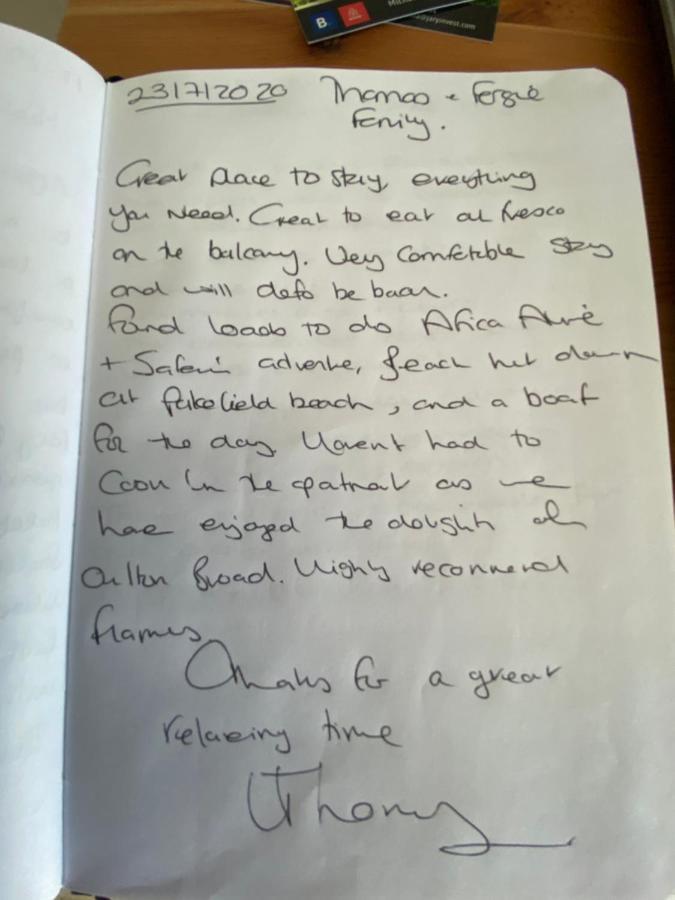 B.
@jaryinvest.com
23/7/2020 Thomas + Fergie
Family.
Great place to stay, everything
you need. Great to eat al fresco
on the balcony. Very comfetable stay
and will defo be back.
Found loads to do Africa Alive
+ Safari adventure, beach hut down
at pakefield beach, and a boat
for the day. Havent had to
Cook in the apartment as we
have enjoyed the delights of
Oulton Broad. Highly recommend
flames.
Thanks for a great
relaxing time